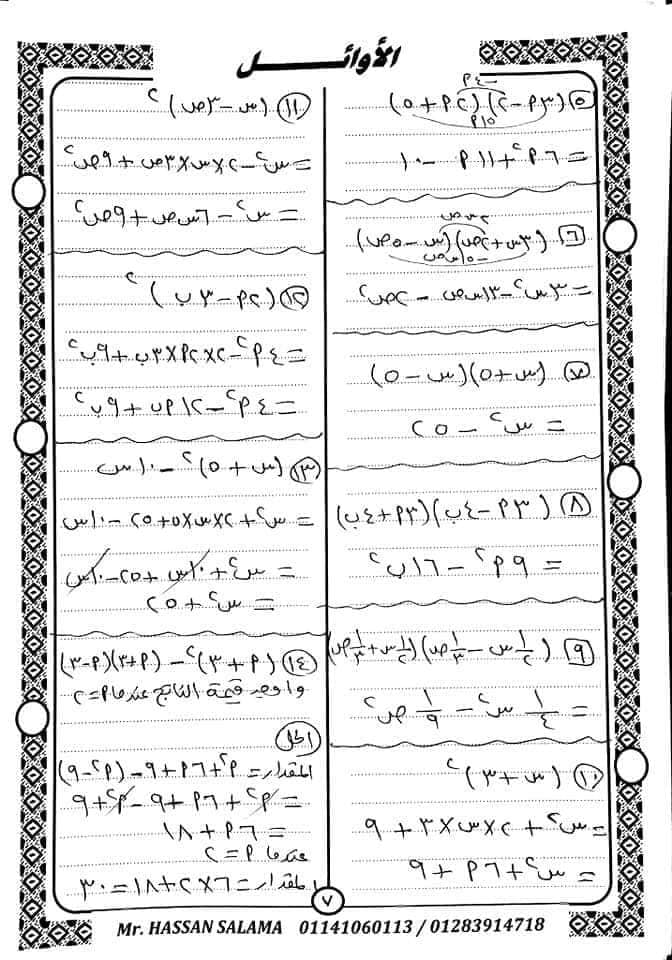 الأوائل
٥ (٣م – ٢)(٢م + ٥)
–٤م
١٥م
= ٦م٢ + ١١م – ١٠
٦ (٣س + ٢ص)(س – ٥ص)
٢س ص
–١٥س ص
= ٣س٢ – ١٣س ص – ٢ص٢
٧ (س + ٥)(س – ٥)
= س٢ – ٢٥
٨ (٣م – ٤ب)(٣م + ٤ب)
= ٩م٢ – ١٦ب٢
٩ (١/٢ س – ١/٣ ص)(١/٢ س + ١/٣ ص)
= ١/٤ س٢ – ١/٩ ص٢
١٠ (س + ٣)٢
= س٢ + ٢×س×٣ + ٩
= س٢ + ٦م + ٩
١١ (س – ٣ص)٢
= س٢ – ٢×س×٣ص + ٩ص٢
= س٢ – ٦س ص + ٩ص٢
١٢ (٢م – ٣ب)٢
= ٤م٢ – ٢×٢م×٣ب + ٩ب٢
= ٤م٢ – ١٢م ب + ٩ب٢
١٣ (س + ٥)٢ – ١٠س
= س٢ + ٢×س×٥ + ٢٥ – ١٠س
= س٢ + ١٠س + ٢٥ – ١٠س
= س٢ + ٢٥
١٤ (م + ٣)٢ – (م + ٣)(م – ٣)
وأوجد قيمة الناتج عندما م = ٢
الحل
المقدار = م٢ + ٦م + ٩ – (م٢ – ٩)
= م٢ + ٦م + ٩ – م٢ + ٩
= ٦م + ١٨
عندما م = ٢
المقدار = ٦×٢ + ١٨ = ٣٠
٧
Mr. HASSAN SALAMA 01141060113 / 01283914718